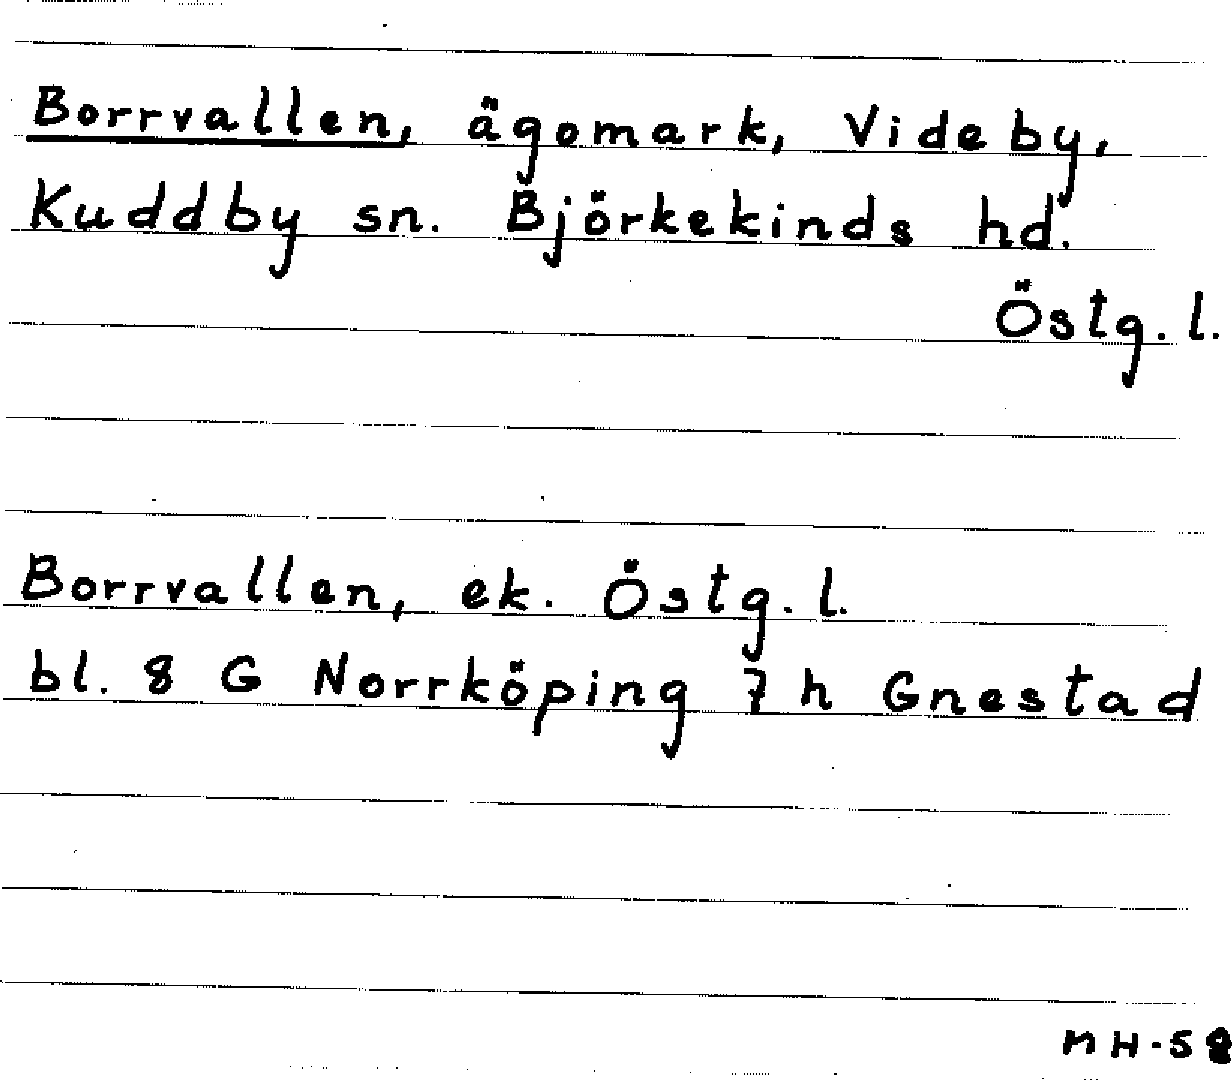 Borrvallen, ägomark, Videby,
Kuddby sn. Björkekinds hd.
Östg. l.
Borrvallen, ek. Östg. l.
bl. 8 G Norrköping 7 h Gnestad
MH-58